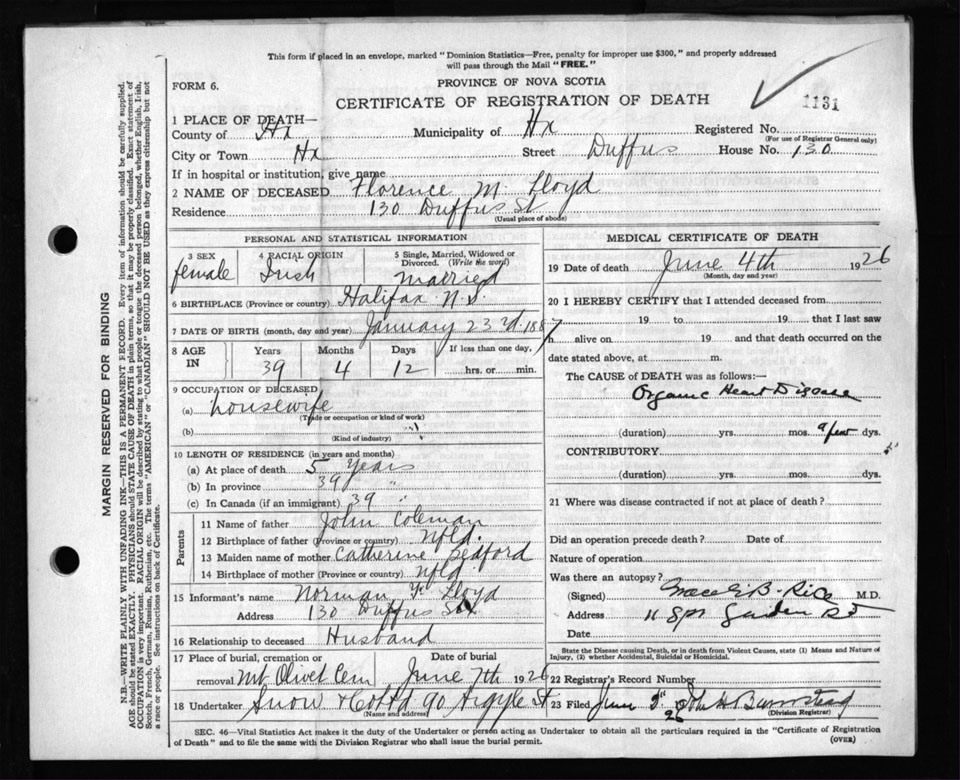 This form if placed in an envelope, marked "Dominion Statistics—Free, penalty for improper use $300," and properly addressed
will pass through the Mail "FREE."
FORM 6.
PROVINCE OF NOVA SCOTIA
CERTIFICATE OF REGISTRATION OF DEATH
1131
1 PLACE OF DEATH—
County of Hx Municipality of Hx Registered No.
(For use of Registrar General only)
City or Town Hx Street Duffus House No. 130
If in hospital or institution, give name
2 NAME OF DECEASED Florence M. Lloyd
Residence 130 Duffus St
(Usual place of abode)
PERSONAL AND STATISTICAL INFORMATION
3 SEX female
4 RACIAL ORIGIN Irish
5 Single, Married, Widowed or Divorced. (Write the word) Married
6 BIRTHPLACE (Province or country) Halifax N.S.
7 DATE OF BIRTH (month, day and year) January 23rd. 1887
8 AGE IN Years 39 Months 4 Days 12 If less than one day, hrs. or min.
9 OCCUPATION OF DECEASED
(a) housewife
(Trade or occupation or kind of work)
(b)
(Kind of industry)
10 LENGTH OF RESIDENCE (in years and months)
(a) At place of death 5 years
(b) In province 39 "
(c) In Canada (if an immigrant) 39 "
Parents
11 Name of father John Coleman
12 Birthplace of father (Province or country) Nfld.
13 Maiden name of mother Catherine Bedford
14 Birthplace of mother (Province or country) Nfld
15 Informant's name Norman Lloyd
Address 130 Duffus St
16 Relationship to deceased Husband
17 Place of burial, cremation or removal Mt Olivet Cem Date of burial June 7th 1926
18 Undertaker Snow & Co Ltd 90 Argyle St
(Name and address)
MEDICAL CERTIFICATE OF DEATH
19 Date of death June 4th 1926
(Month, day and year)
20 I HEREBY CERTIFY that I attended deceased from
19 to 19 that I last saw
h alive on 19 and that death occurred on the
date stated above, at m.
The CAUSE OF DEATH was as follows:—
Organic Heart Disease
(duration) yrs. mos. a few dys.
CONTRIBUTORY
(duration) yrs. mos. dys.
21 Where was disease contracted if not at place of death?
Did an operation precede death? Date of
Nature of operation
Was there an autopsy?
(Signed) Grace E. B. Rice M.D.
Address Garden
Date
State the Disease causing Death, or in death from Violent Causes, state (1) Means and Nature of
Injury, (2) whether Accidental, Suicidal or Homicidal.
22 Registrar's Record Number
23 Filed June 26 John H Barnstead
(Division Registrar)
SEC. 46—Vital Statistics Act makes it the duty of the Undertaker or person acting as Undertaker to obtain all the particulars required in the "Certificate of Registration
of Death" and to file the same with the Division Registrar who shall issue the burial permit.
(OVER)
MARGIN RESERVED FOR BINDING
N.B.—WRITE PLAINLY WITH UNFADING INK—THIS IS A PERMANENT RECORD. Every item of information should be carefully supplied.
AGE should be stated EXACTLY. PHYSICIANS should STATE CAUSE OF DEATH in plain terms, so that it may be properly classified. Exact statement of
OCCUPATION is very important. RACIAL ORIGIN will be described by stating to what people or tongue the deceased person belonged, whether English, Irish,
Scotch, French, German, Russian, Ruthenian, etc. The terms "AMERICAN" or "CANADIAN" SHOULD NOT BE USED as they express citizenship but not
a race or people. See instructions on back of Certificate.